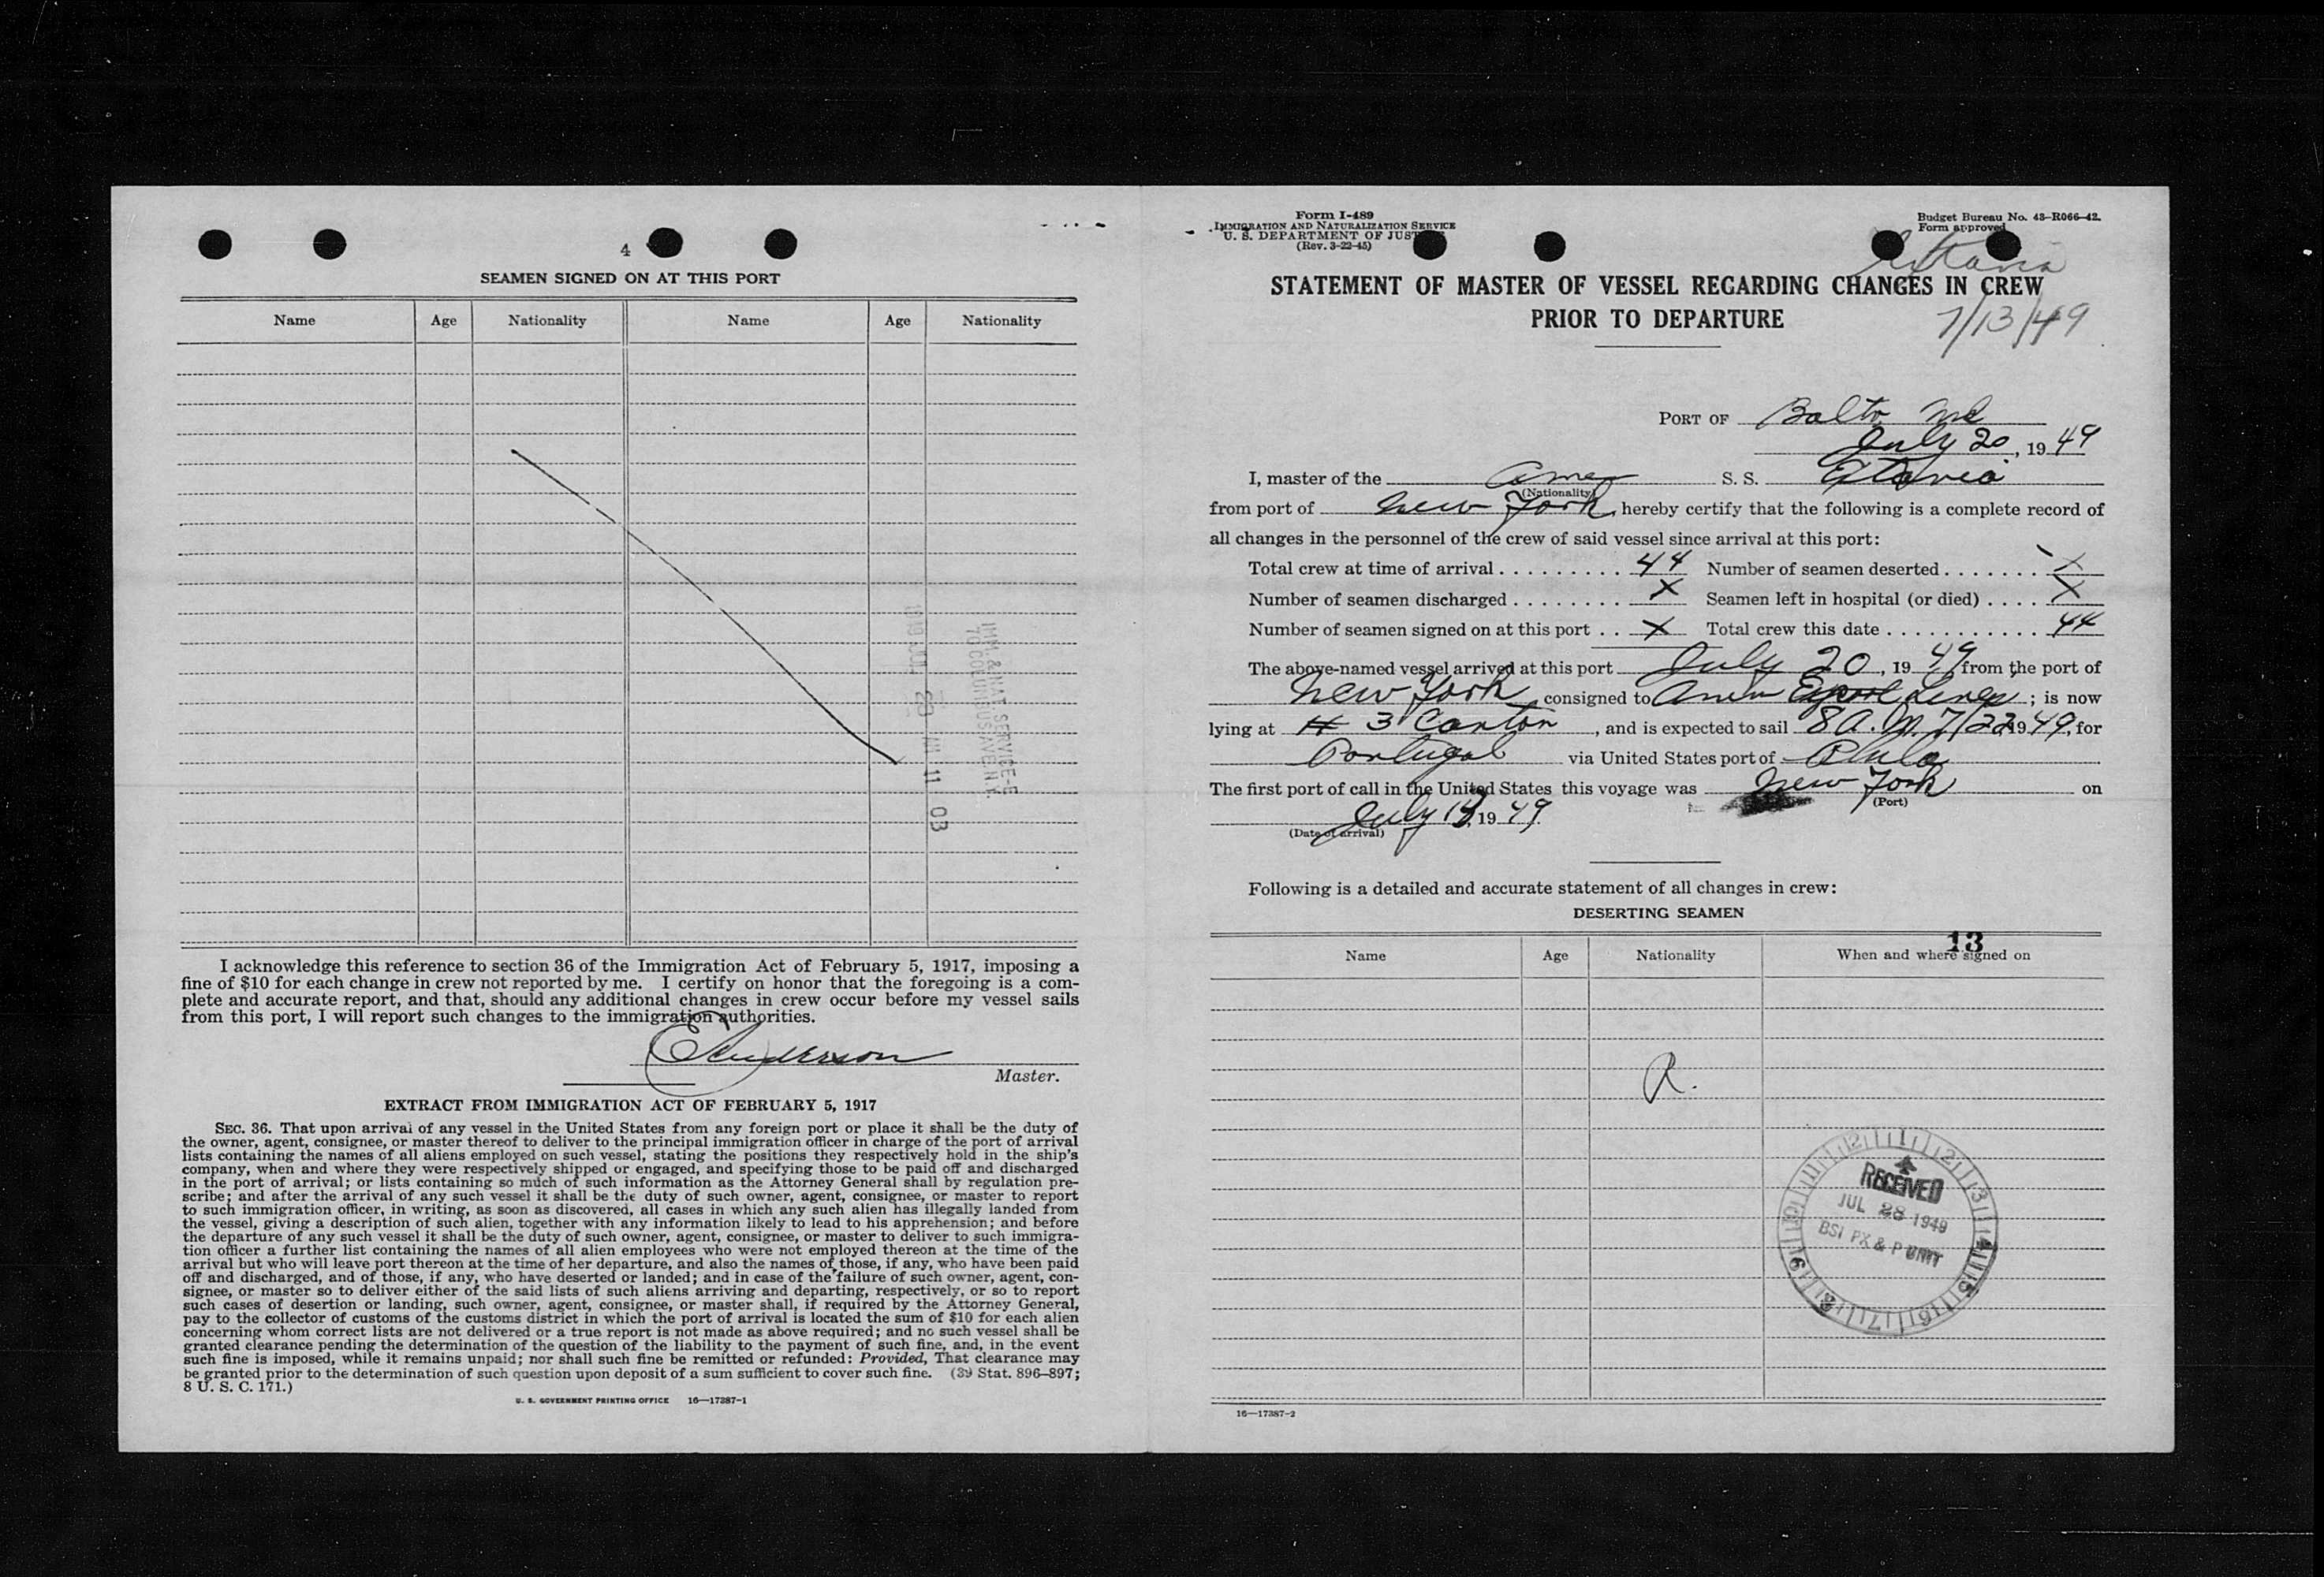 4
SEAMEN SIGNED ON AT THIS PORT
Name Age Nationality Name Age Nationality
IMM. & NAT. SERVICE-E
70 COLUMBUS AVE. N.Y.
11 03
I acknowledge this reference to section 36 of the Immigration Act of February 5, 1917, imposing a
fine of $10 for each change in crew not reported by me. I certify on honor that the foregoing is a com-
plete and accurate report, and that, should any additional changes in crew occur before my vessel sails
from this port, I will report such changes to the immigration authorities.
E Anderson
Master.
EXTRACT FROM IMMIGRATION ACT OF FEBRUARY 5, 1917
SEC. 36. That upon arrival of any vessel in the United States from any foreign port or place it shall be the duty of
the owner, agent, consignee, or master thereof to deliver to the principal immigration officer in charge of the port of arrival
lists containing the names of all aliens employed on such vessel, stating the positions they respectively hold in the ship's
company, when and where they were respectively shipped or engaged, and specifying those to be paid off and discharged
in the port of arrival; or lists containing so much of such information as the Attorney General shall by regulation pre-
scribe; and after the arrival of any such vessel it shall be the duty of such owner, agent, consignee, or master to report
to such immigration officer, in writing, as soon as discovered, all cases in which any such alien has illegally landed from
the vessel, giving a description of such alien, together with any information likely to lead to his apprehension; and before
the departure of any such vessel it shall be the duty of such owner, agent, consignee, or master to deliver to such immigra-
tion officer a further list containing the names of all alien employees who were not employed thereon at the time of the
arrival but who will leave port thereon at the time of her departure, and also the names of those, if any, who have been paid
off and discharged, and of those, if any, who have deserted or landed; and in case of the failure of such owner, agent, con-
signee, or master so to deliver either of the said lists of such aliens arriving and departing, respectively, or so to report
such cases of desertion or landing, such owner, agent, consignee, or master shall, if required by the Attorney General,
pay to the collector of customs of the customs district in which the port of arrival is located the sum of $10 for each alien
concerning whom correct lists are not delivered or a true report is not made as above required; and no such vessel shall be
granted clearance pending the determination of the question of the liability to the payment of such fine, and, in the event
such fine is imposed, while it remains unpaid; nor shall such fine be remitted or refunded: Provided, That clearance may
be granted prior to the determination of such question upon deposit of a sum sufficient to cover such fine. (39 Stat. 896–897;
8 U. S. C. 171.)
U. S. GOVERNMENT PRINTING OFFICE 16—17387-1
Form I-489
IMMIGRATION AND NATURALIZATION SERVICE
U. S. DEPARTMENT OF JUSTICE
(Rev. 3-22-45)
Budget Bureau No. 43–R066–42.
Form approved
STATEMENT OF MASTER OF VESSEL REGARDING CHANGES IN CREW
PRIOR TO DEPARTURE
7/13/49
PORT OF Balto Md
July 20, 1949
I, master of the Amer S. S. Extavia
(Nationality)
from port of New York, hereby certify that the following is a complete record of
all changes in the personnel of the crew of said vessel since arrival at this port:
Total crew at time of arrival . . . . . . . . . . 44 Number of seamen deserted . . . . . . . X
Number of seamen discharged . . . . . . . . X Seamen left in hospital (or died) . . . . X
Number of seamen signed on at this port . . X Total crew this date . . . . . . . . . . . . 44
The above-named vessel arrived at this port July 20, 1949 from the port of
New York consigned to Amer Export Lines; is now
lying at # 3 Canton, and is expected to sail 8 A.M. 7/22 1949, for
Portugal via United States port of Phila
The first port of call in the United States this voyage was New York on
(Port)
July 13, 1949
(Date of arrival)
Following is a detailed and accurate statement of all changes in crew:
DESERTING SEAMEN
13
Name Age Nationality When and where signed on
R.
RECEIVED
JUL 28 1949
BSI PX & P UNIT
16—17387-2